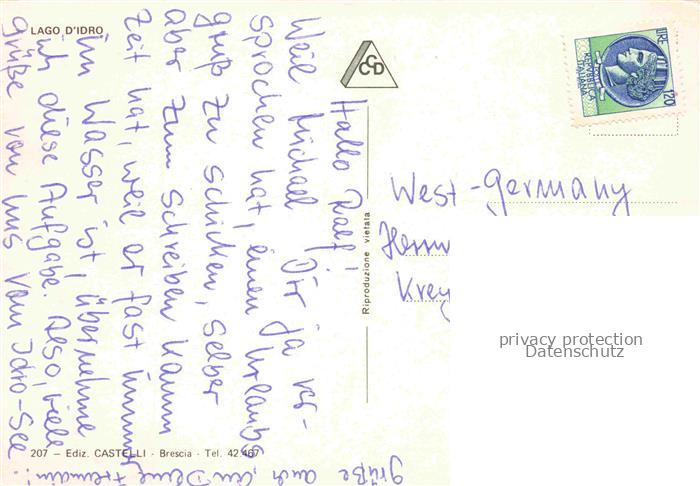 LAGO D'IDRO
CCD
LIRE 120
REPUBBLICA ITALIANA
West-Germany
Herrn
Krey
Riproduzione vietata
Hallo Ralf!
Weil Michael Dir ja ver-
sprochen hat, einen Urlaubs
gruß zu schicken, selber
aber zum schreiben kaum
Zeit hat, weil er fast immer
im Wasser ist, übernehme
ich diese Aufgabe. Also, viele
grüße von uns vom Idro-See
grüße auch an Deine Freundin!
207 – Ediz. CASTELLI - Brescia - Tel. 42.467
privacy protection
Datenschutz